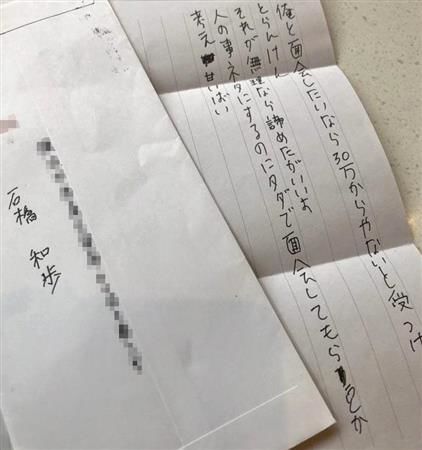 俺と面会したいなら30万からやないと受つけ
とらんけん
それが無理なら諦めたがいいよ
人の事ネタにするのにタダで面会してもらとか
考え甘いばい
石橋 和歩